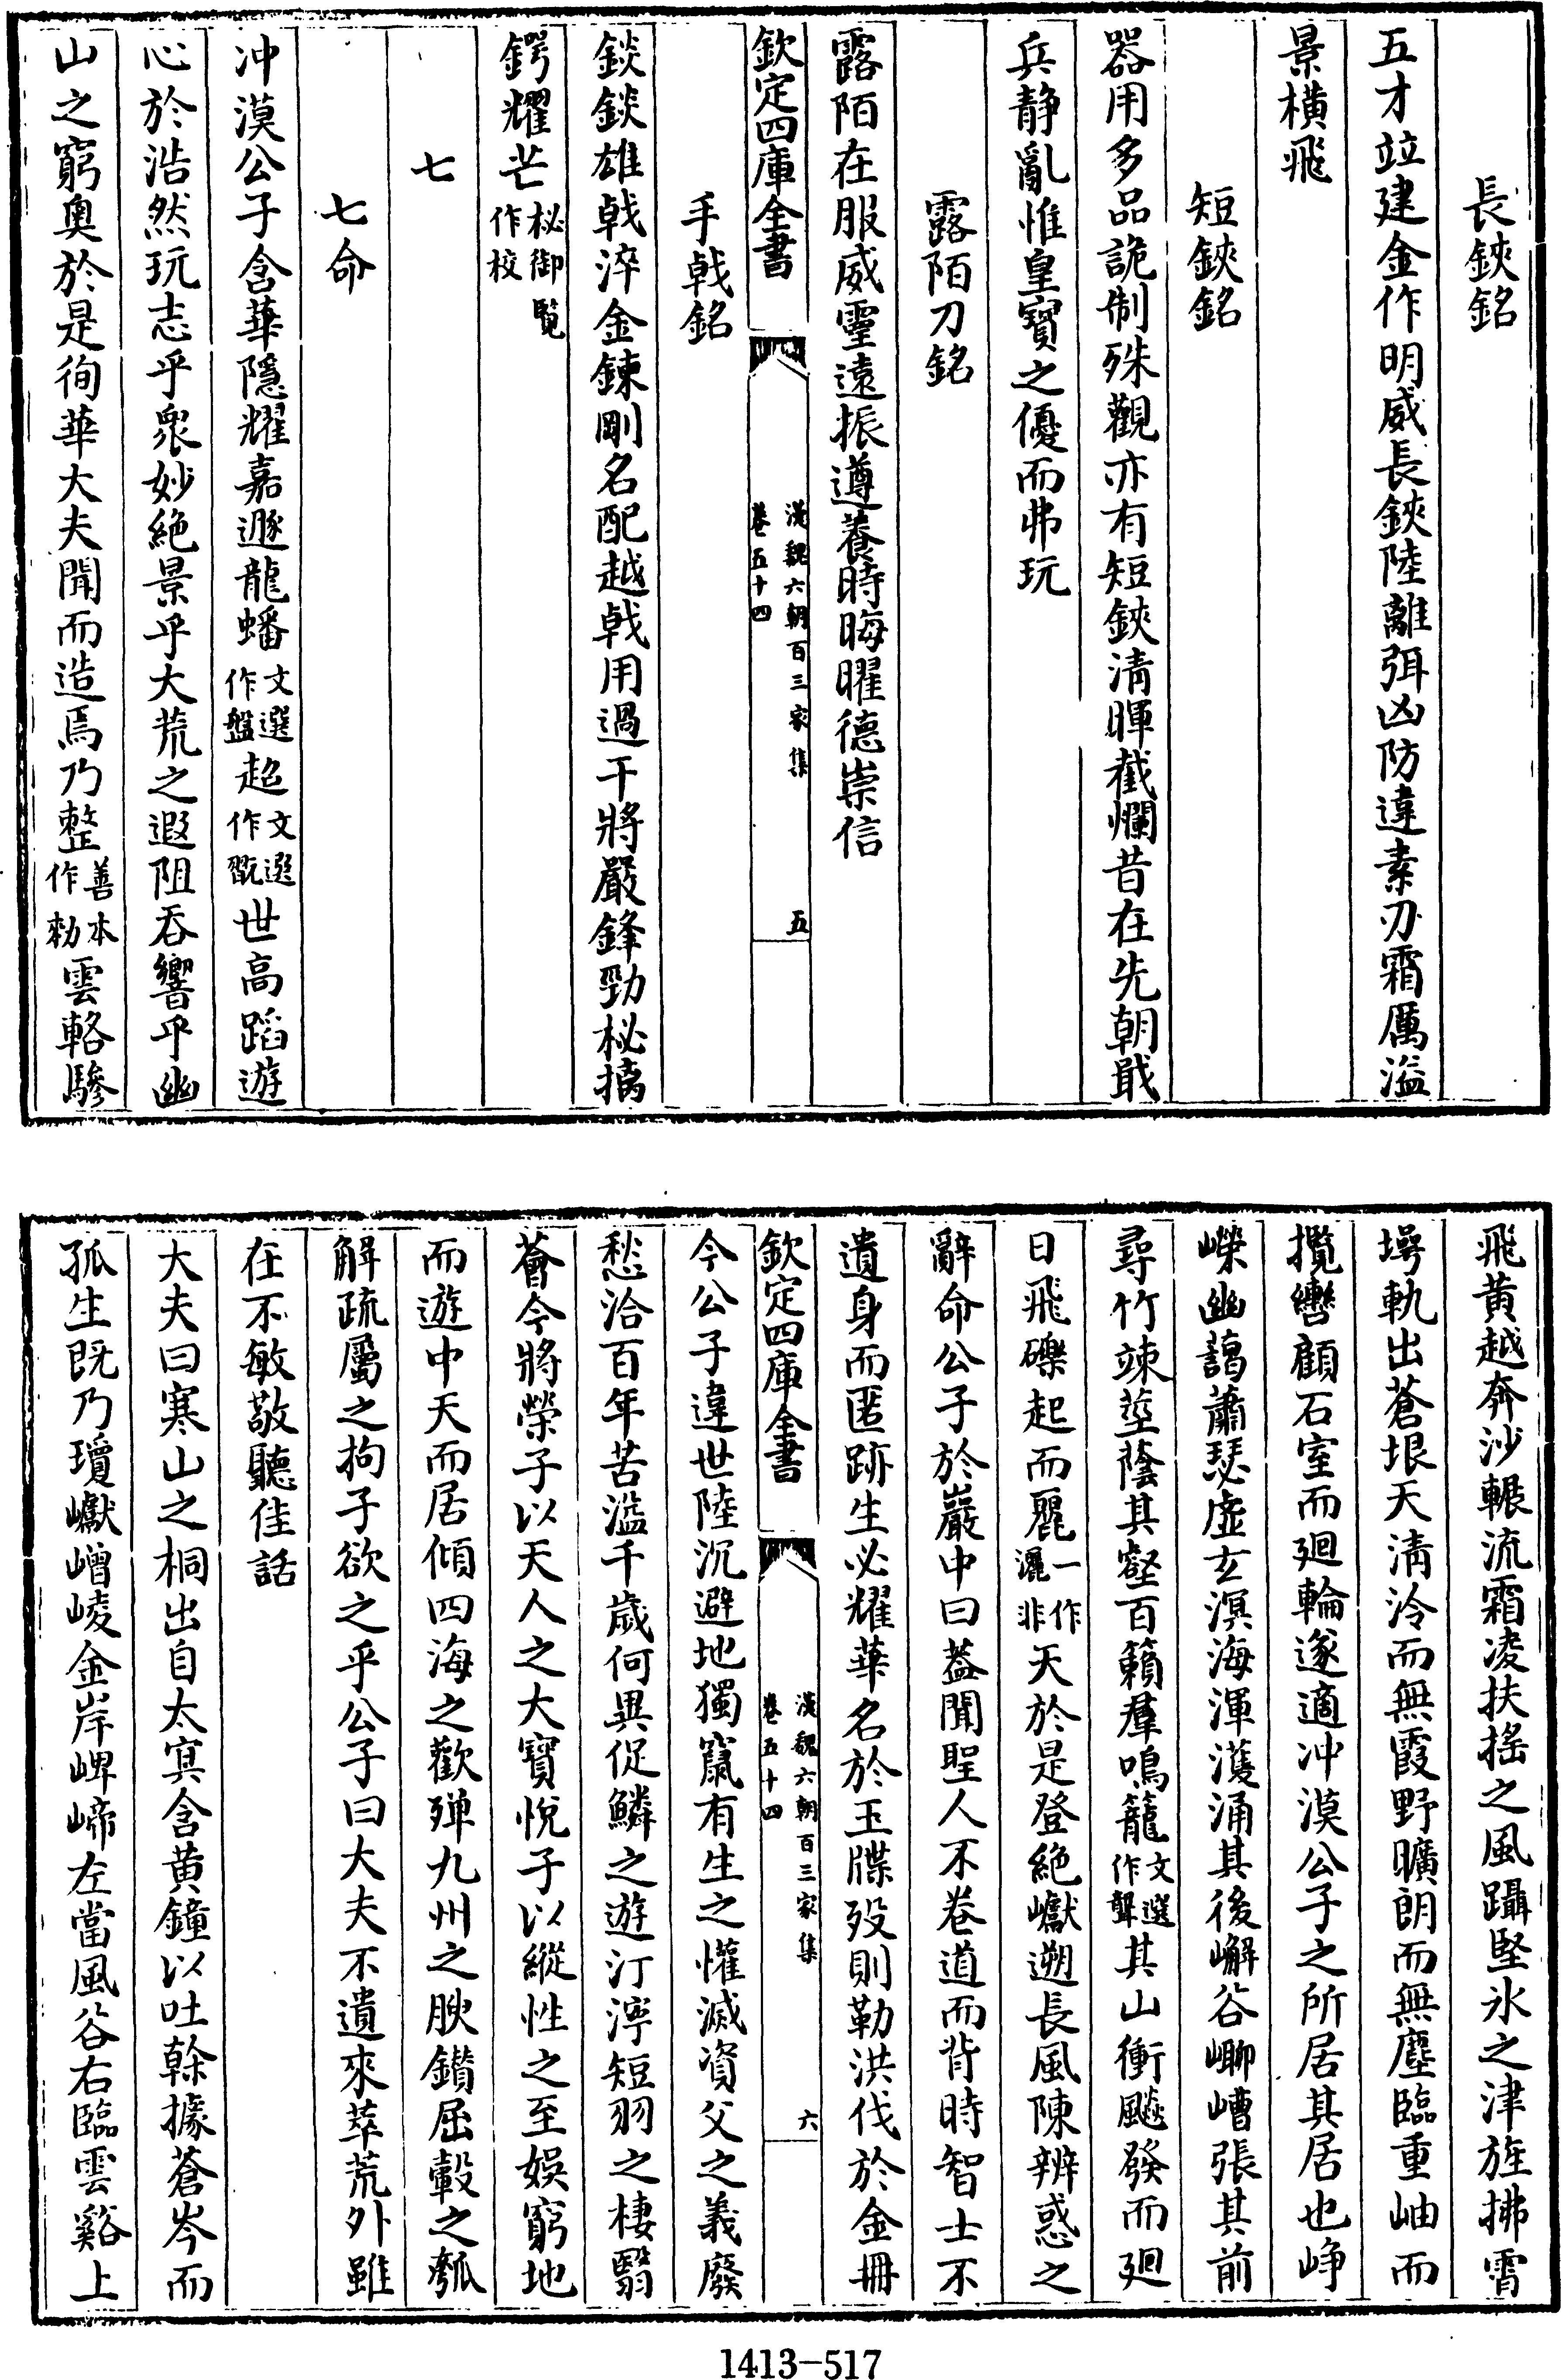 長鋏銘
五才竝建金作明威長鋏陸離弭凶防違素刃霜厲溢
景横飛
短鋏銘
器用多品詭制殊觀亦有短鋏清暉載爛昔在先朝戢
兵静亂惟皇寳之優而弗玩
露陌刀銘
露陌在服威靈遠振遵養時晦曜德崇信
欽定四庫全書
漢魏六朝百三家集
卷五十四
五
手戟銘
錟錟雄戟淬金鍊剛名配越戟用過干將嚴鋒勁柲摛
鍔耀芒柲御覧作校
七
七命
冲漠公子含華隱耀嘉遯龍蟠文選作盤超文選作翫世高蹈遊
心於浩然玩志乎衆妙絶景乎大荒之遐阻吞響乎幽
山之窮奥於是徇華大夫聞而造焉乃整善本作勑雲輅驂
飛黄越奔沙輾流霜凌扶摇之風躡堅氷之津旌拂霄
堮軌出蒼垠天清泠而無霞野曠朗而無塵臨重岫而
攬轡顧石室而廻輪遂適冲漠公子之所居其居也峥
嶸幽藹蕭瑟虚玄溟海渾濩涌其後嶰谷嶗嶆張其前
尋竹竦莖蔭其壑百籟羣鳴籠文選作聾其山衝飈發而廻
日飛礫起而麗一作灑非天於是登絶巘遡長風陳辨惑之
辭命公子於巖中曰葢聞聖人不卷道而背時智士不
遺身而匿跡生必耀華名於玉牒殁則勒洪伐於金冊
欽定四庫全書
漢魏六朝百三家集
卷五十四
六
今公子違世陸沉避地獨竄有生之懽滅資父之義廢
愁洽百年苦溢千歲何異促鱗之遊汀濘短羽之棲翳
薈今將榮子以天人之大寳悦子以縱性之至娱窮地
而遊中天而居傾四海之歡殫九州之腴鑚屈轂之瓠
解疏屬之拘子欲之乎公子曰大夫不遺來萃荒外雖
在不敏敬聽佳話
大夫曰寒山之桐出自太冥含黄鐘以吐榦據蒼岑而
孤生既乃瓊巘嶒崚金岸崥崹左當風谷右臨雲谿上
1413-517